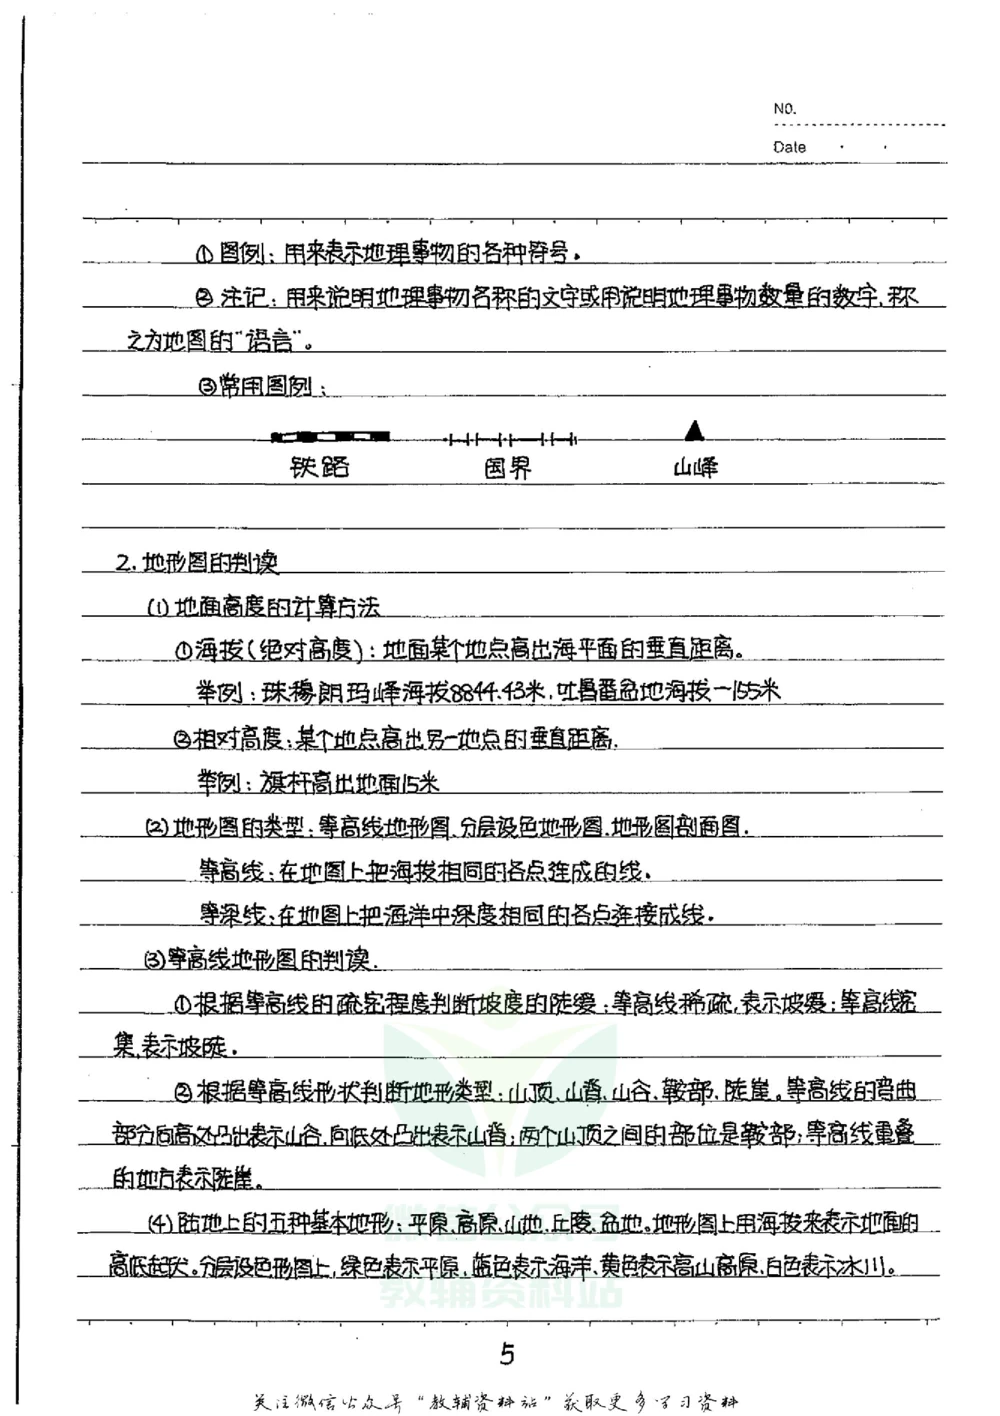 NO.
Date
①图例：用来表示地理事物的各种符号。
②注记：用来说明地理事物名称的文字或用说明地理事物数量的数字，称
之为地图的“语言”。
③常用图例：
铁路 国界 山峰
2.地形图的判读
(1)地面高度的计算方法
①海拔(绝对高度)：地面某个地点高出海平面的垂直距离。
举例：珠穆朗玛峰海拔8844.43米，吐鲁番盆地海拔-155米
②相对高度：某个地点高出另一地点的垂直距离.
举例：旗杆高出地面15米
(2)地形图的类型：等高线地形图、分层设色地形图、地形图剖面图.
等高线：在地图上把海拔相同的各点连成的线。
等深线：在地图上把海洋中深度相同的各点连接成线。
(3)等高线地形图的判读.
①根据等高线的疏密程度判断坡度的陡缓：等高线稀疏，表示坡缓；等高线密
集，表示坡陡。
②根据等高线形状判断地形类型：山顶、山脊、山谷、鞍部、陡崖。等高线的弯曲
部分向高处凸出表示山谷，向低处凸出表示山脊；两个山顶之间的部位是鞍部；等高线重叠
的地方表示陡崖。
(4)陆地上的五种基本地形：平原、高原、山地、丘陵、盆地。地形图上用海拔来表示地面的
高低起伏。分层设色形图上，绿色表示平原，蓝色表示海洋，黄色表示高山高原，白色表示冰川。
教辅资料站
5
关注微信公众号“教辅资料站”获取更多学习资料